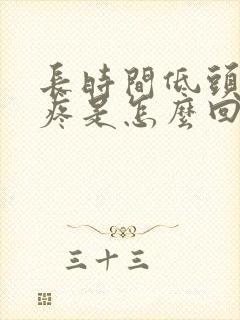 長時間低頭
疼是怎麼回
三十三